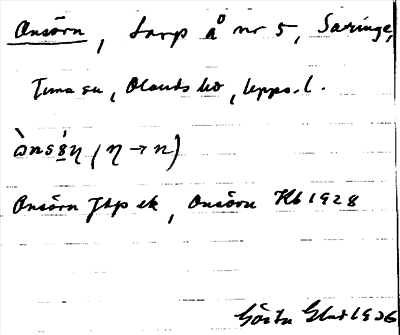 Onsörn, torp å nr 5, Saringe,
Tuna sn, Olands hd, Upps. l.
ὰns8̇η (η → n)
Onsörn Jbp ek, Onsörn Hb 1928
Gösta 1926